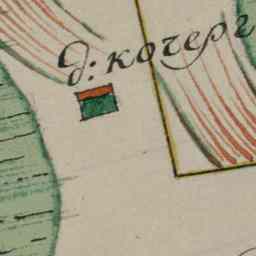 д: кочерг